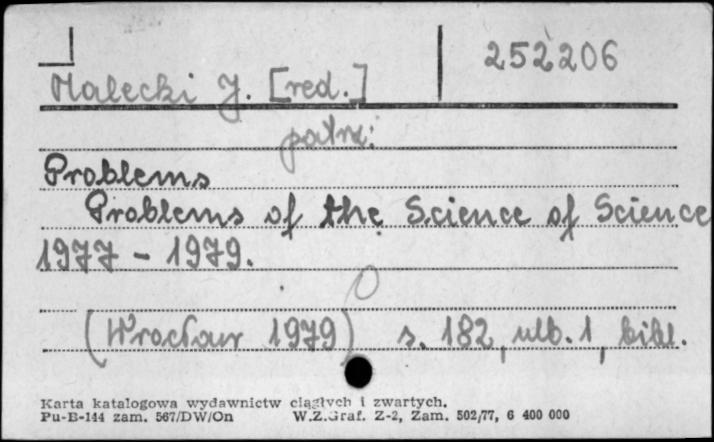 252206
Malecki J. [red.]
patrz:
Problems
Problems of the Science of Science
1977 - 1979.
(Wrocław 1979) s. 182, nlb. 1, bibl.
Karta katalogowa wydawnictw ciągłych i zwartych.
Pu-B-144 zam. 567/DW/On W.Z.Graf. Z-2, Zam. 502/77, 6 400 000